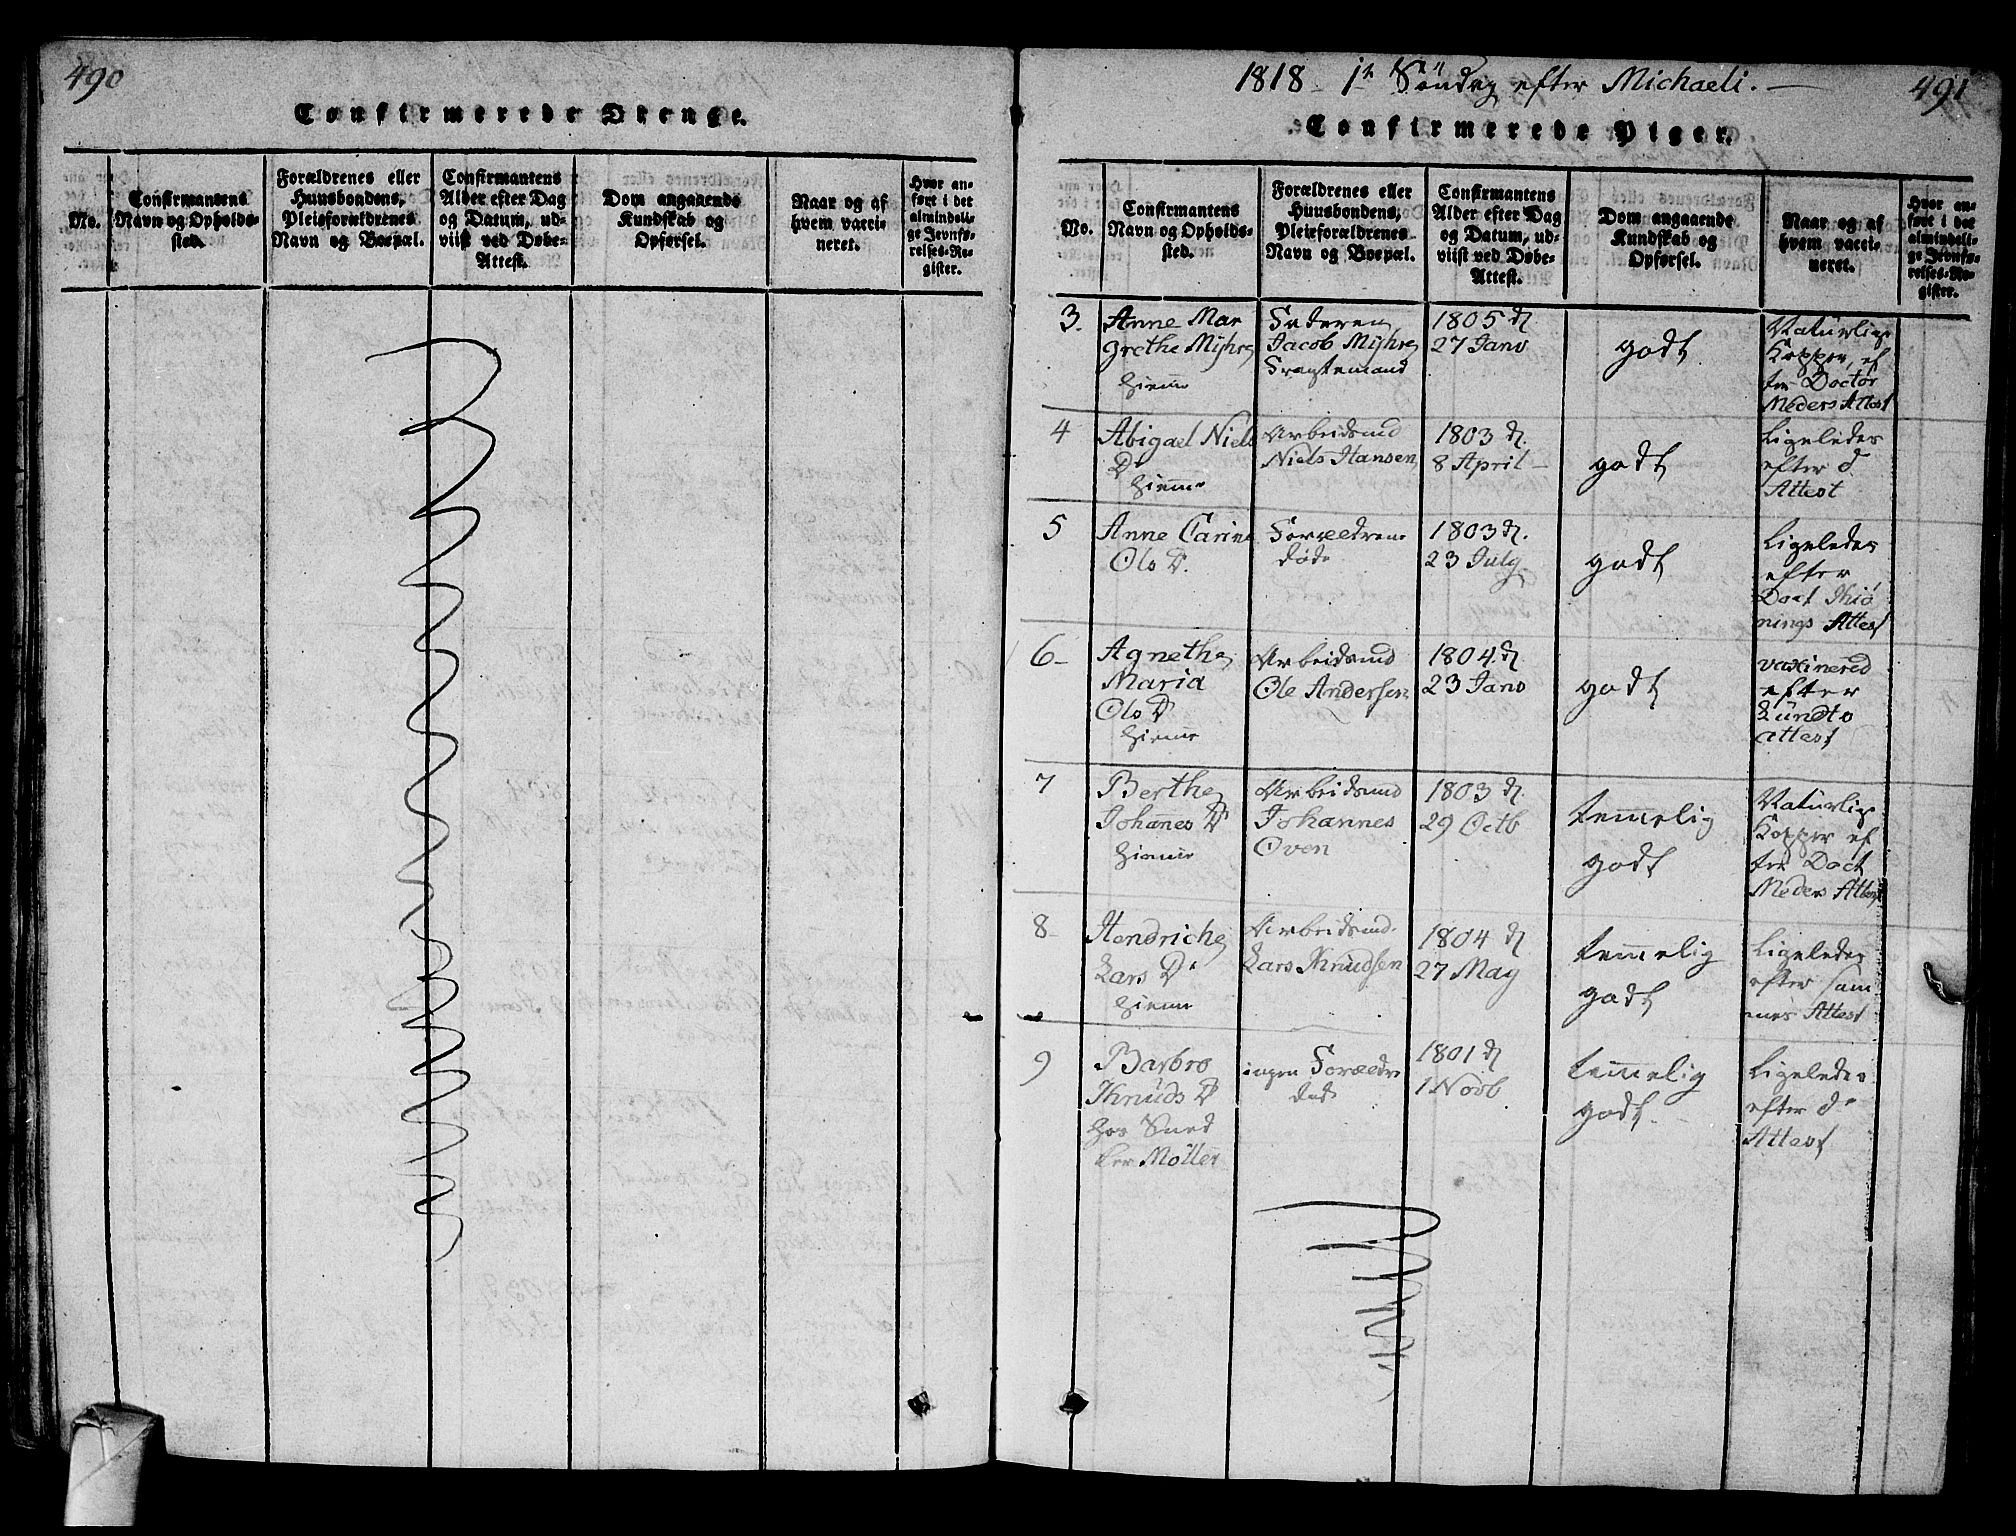 490
Confirmerede Drenge.
No.
Confirmantens
Navn og Opholds-
sted.
Forældrenes eller
Huusbondens,
Pleieforældrenes
Navn og Boepæl.
Confirmantens
Alder efter Dag
og Datum, ud-
viist ved Døbe-
Attest.
Dom angaaende
Kundskab og
Opførsel.
Naar og af
hvem vacci-
neret.
Hvor an-
ført i det
almindeli-
ge Jevnfø-
relses-Re-
gister.
1818 1te Söndag efter Michaeli.
491
Confirmerede Piger.
No.
Confirmantens
Navn og Opholds-
sted.
Forældrenes eller
Huusbondens,
Pleieforældrenes
Navn og Boepæl.
Confirmantens
Alder efter Dag
og Datum, ud-
viist ved Døbe-
Attest.
Dom angaaende
Kundskab og
Opførsel.
Naar og af
hvem vacci-
neret.
Hvor an-
ført i det
almindeli-
ge Jevnfø-
relses-Re-
gister.
3.
Anne Mar
grethe Myhre
hiemme
Faderen
Jacob Myhre
Fragtemand
1805 d.
27 Janv
godt
Naturlige
Kopper, ef
ter Doctor
Meders Attest
4
Abigael Niels
D.
hiemme
Arbeidsmd
Niels Hansen
1803 d.
8 April
godt
Ligeledes
efter do
Attest
5
Anne Carine
Ols D.
Forældrene
døde
1803 d.
23 July
godt
Ligeledes
efter
Doct Thiø
nings Attest
6
Agnethe
Maria
Ols D
hiemme
Arbeidsmd
Ole Andersen
1804 d.
23 Janv
godt
vaxinered
efter
Lundto
attest
7
Berthe
Johanes D
hiemme
Arbeidsmd
Johannes
Oven
1803 d.
29 Octb
temmelig
godt
Naturlige
Kopper ef
ter Doct
Meders Attest
8
Hendriche
Lars D.
hiemme
Arbeidsmd.
Lars Knudsen
1804 d
27 May
temmelig
godt
Ligeledes
efter sam
mes Attest
9
Barbro
Knuds D
hos Sned
ker Möller
ingen Forældre
døde
1801 d
1 Novb
temmelig
godt
Ligeledes
efter do
Attest